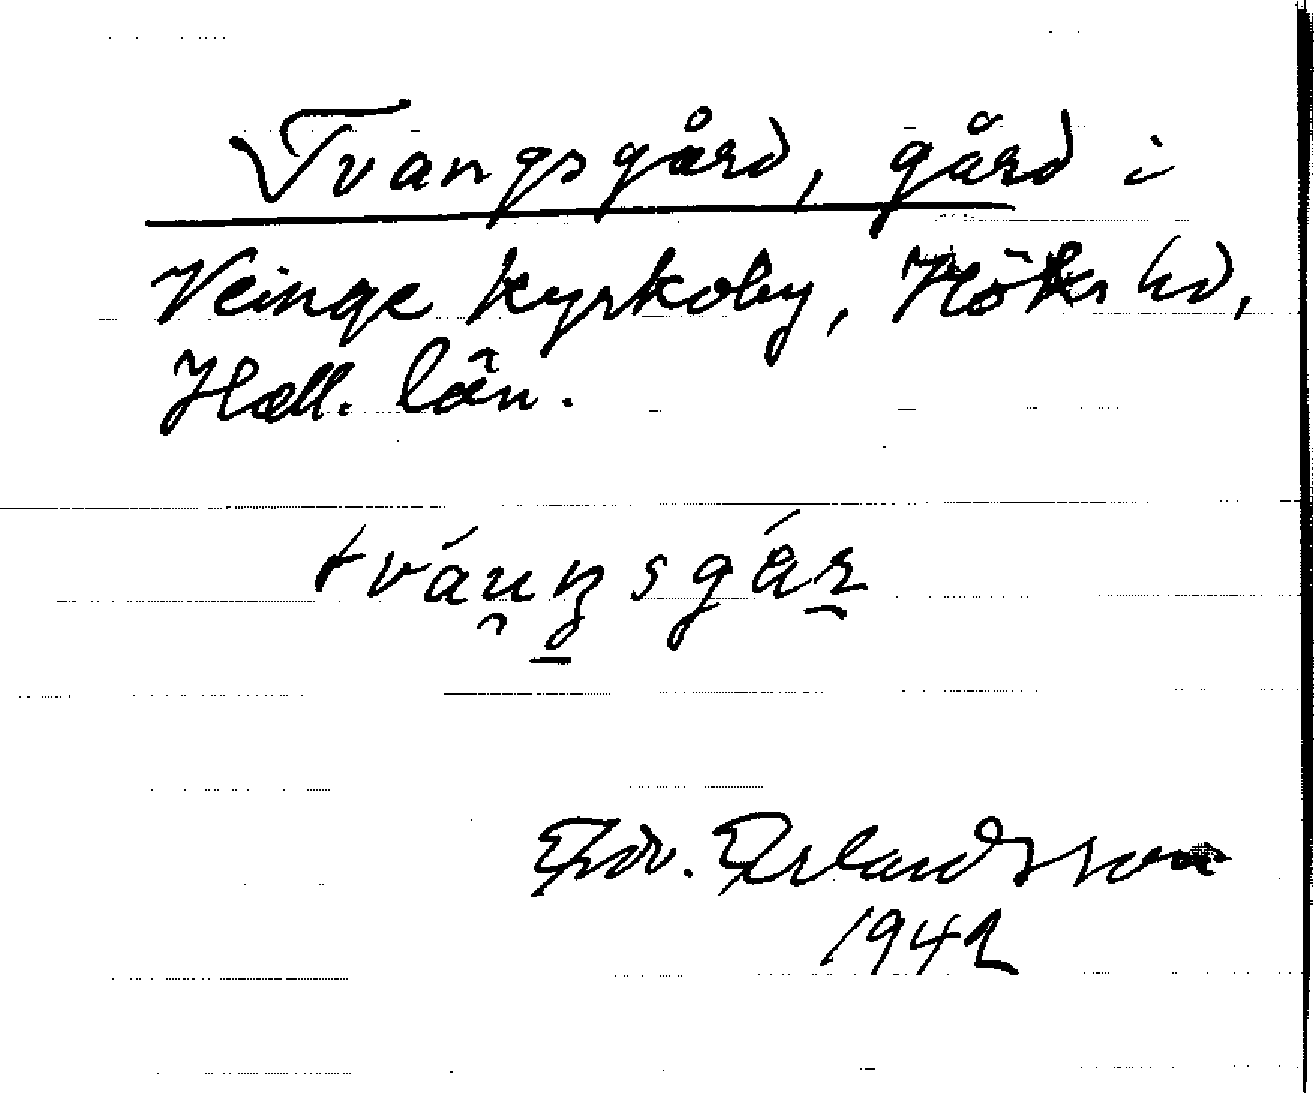 Tvangsgård, gård i
Veinge kyrkoby, Höks hd,
Hall. län.
tváu̯ŋsgár
Edv. Erlandsson
1942